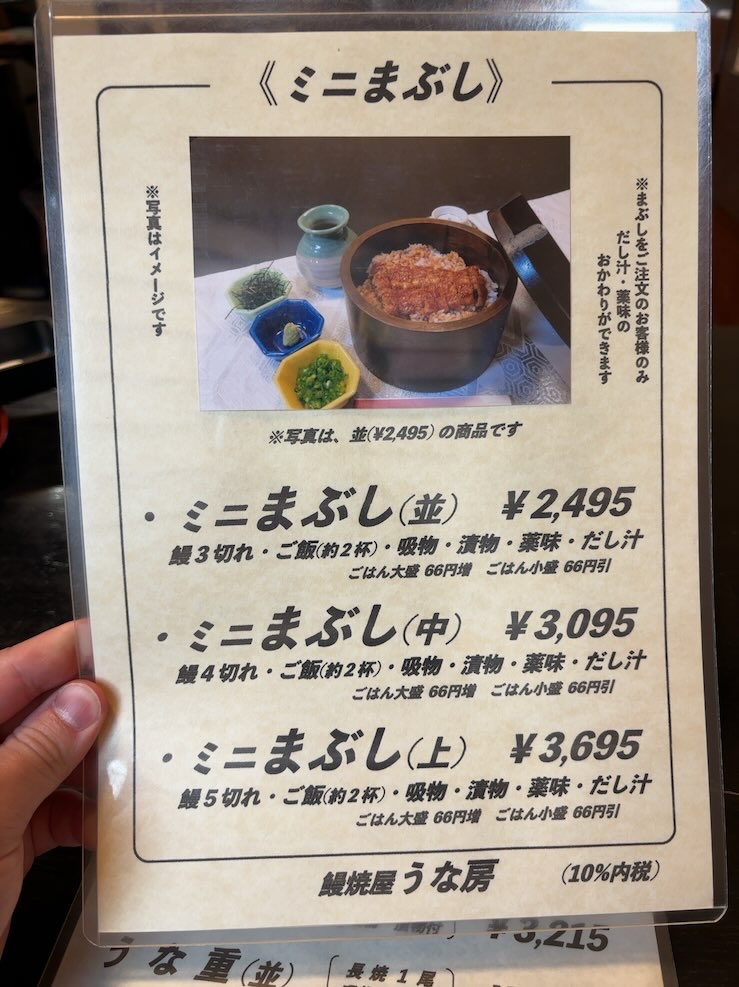 《ミニまぶし》
※まぶしをご注文のお客様のみ
だし汁・薬味の
おかわりができます
※写真はイメージです
※写真は、並(¥2,495)の商品です
・ミニまぶし(並) ¥2,495
鰻3切れ・ご飯(約2杯)・吸物・漬物・薬味・だし汁
ごはん大盛 66円増 ごはん小盛 66円引
・ミニまぶし(中) ¥3,095
鰻4切れ・ご飯(約2杯)・吸物・漬物・薬味・だし汁
ごはん大盛 66円増 ごはん小盛 66円引
・ミニまぶし(上) ¥3,695
鰻5切れ・ご飯(約2杯)・吸物・漬物・薬味・だし汁
ごはん大盛 66円増 ごはん小盛 66円引
鰻焼屋うな房 (10%内税)
¥3,215
うな重(並) 長焼1尾